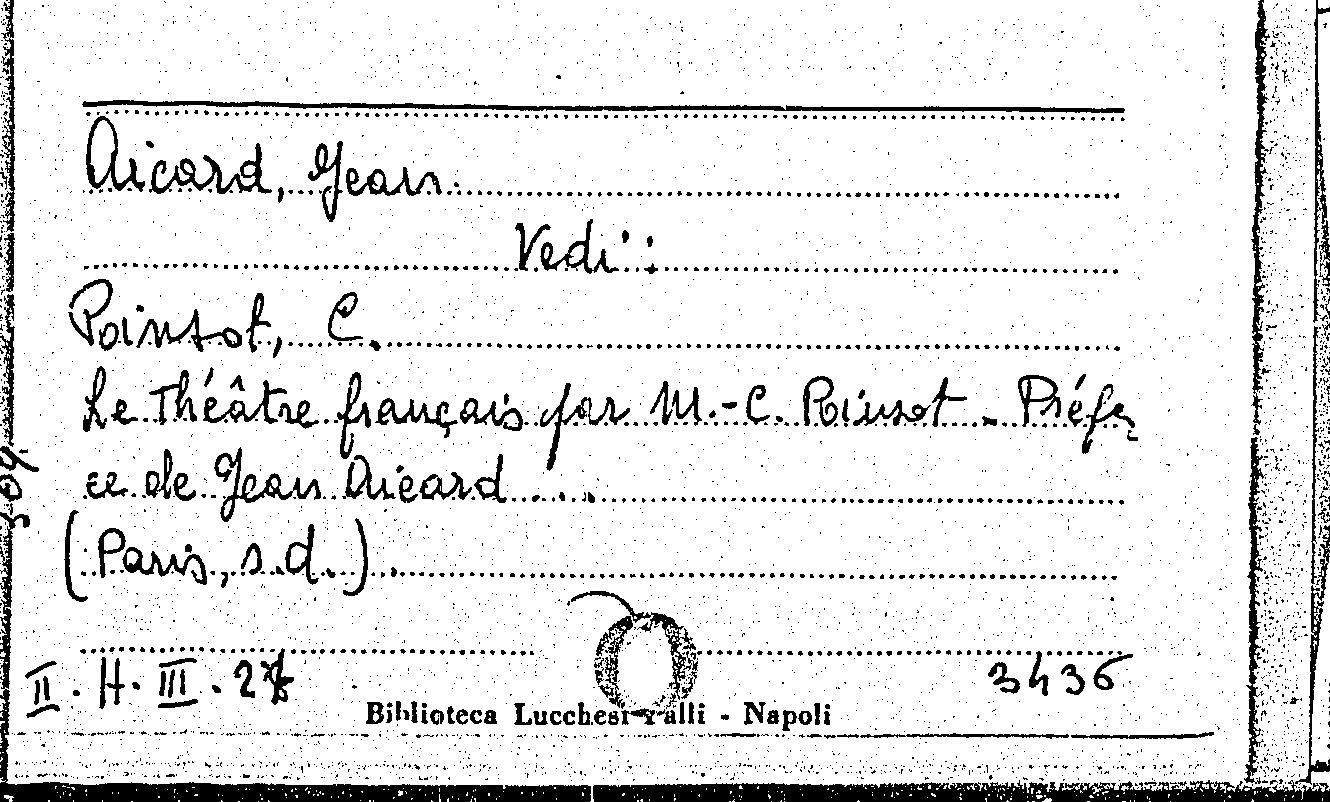 Aicard, Jean
Vedi:
Poinsot, C.
Le Théâtre français par M.-C. Poinsot - Préfa
ce de Jean Aicard ...
(Paris, s.d.).
II. H. III.
3436
Biblioteca Lucchesi-Palli - Napoli